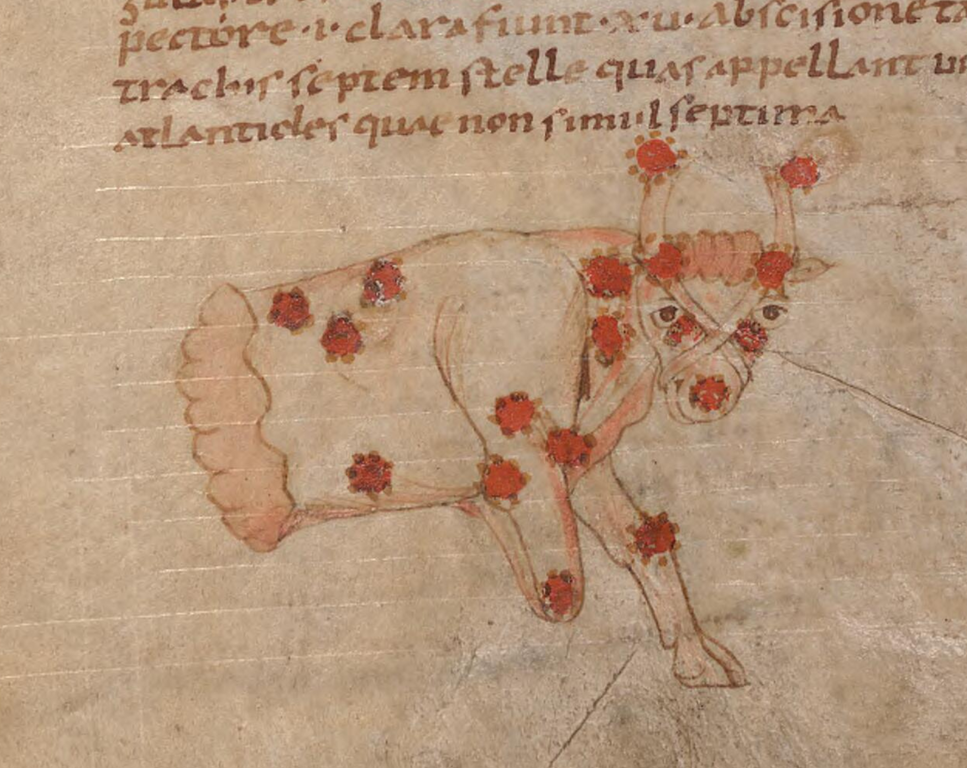 pectore · i · clara fiunt · x · u · abscisione ta
trachis septem stelle quas appellant
atlantides quae non simul septima